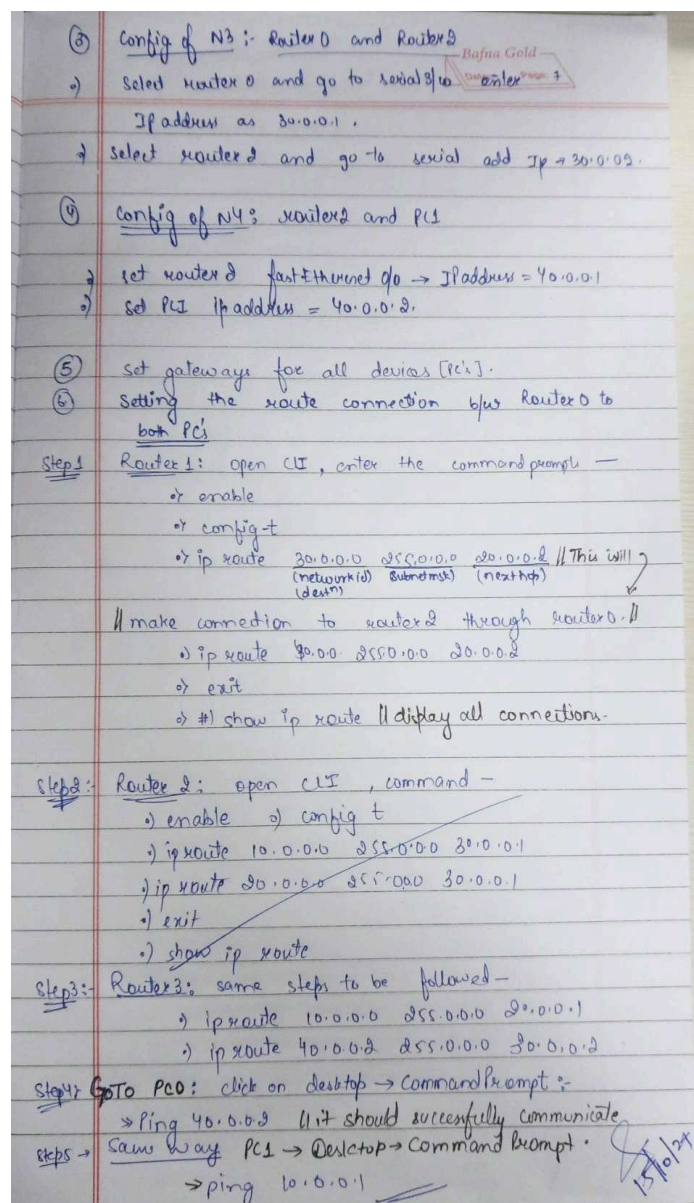 ③ Config of N3 :- Router 0 and Router 2
Bafna Gold
Date: Page: 7
•) Select router 0 and go to serial 3/0 enter
IP address as 30.0.0.1 .
•) Select router 2 and go to serial add Ip → 30.0.02.
④ Config of N4 : router2 and PC1
•) set router 2 fastEthernet 0/0 → IPaddress = 40.0.0.1
•) Set PC1 ip address = 40.0.0.2.
⑤ Set gateways for all devices [PC's].
⑥ Setting the route connection b/w Router 0 to
both PC's
Step1 Router 1: open CLI , enter the command prompt —
•) enable
•) config-t
•) ip route 30.0.0.0 255.0.0.0 20.0.0.2 // This will
(network id) (subnetmsk) (next hop)
(destn)
// make connection to router 2 through router 0. //
•) ip route 40.0.0 255.0.0.0 20.0.0.2
•) exit
•) #) show ip route // display all connections.
Step2:- Router 2: open CLI , command —
•) enable •) config t
•) ip route 10.0.0.0 255.0.0.0 30.0.0.1
•) ip route 20.0.0.0 255.0.0.0 30.0.0.1
•) exit
•) show ip route
Step3:- Router 3: same steps to be followed —
•) ip route 10.0.0.0 255.0.0.0 20.0.0.1
•) ip route 40.0.0.2 255.0.0.0 30.0.0.2
Step4: GOTO PC0: click on desktop → Command Prompt :-
→ Ping 40.0.0.2 // it should succesfully communicate
Step5 → Same Way PC1 → Desktop → Command Prompt .
→ ping 10.0.0.1
15/10/24